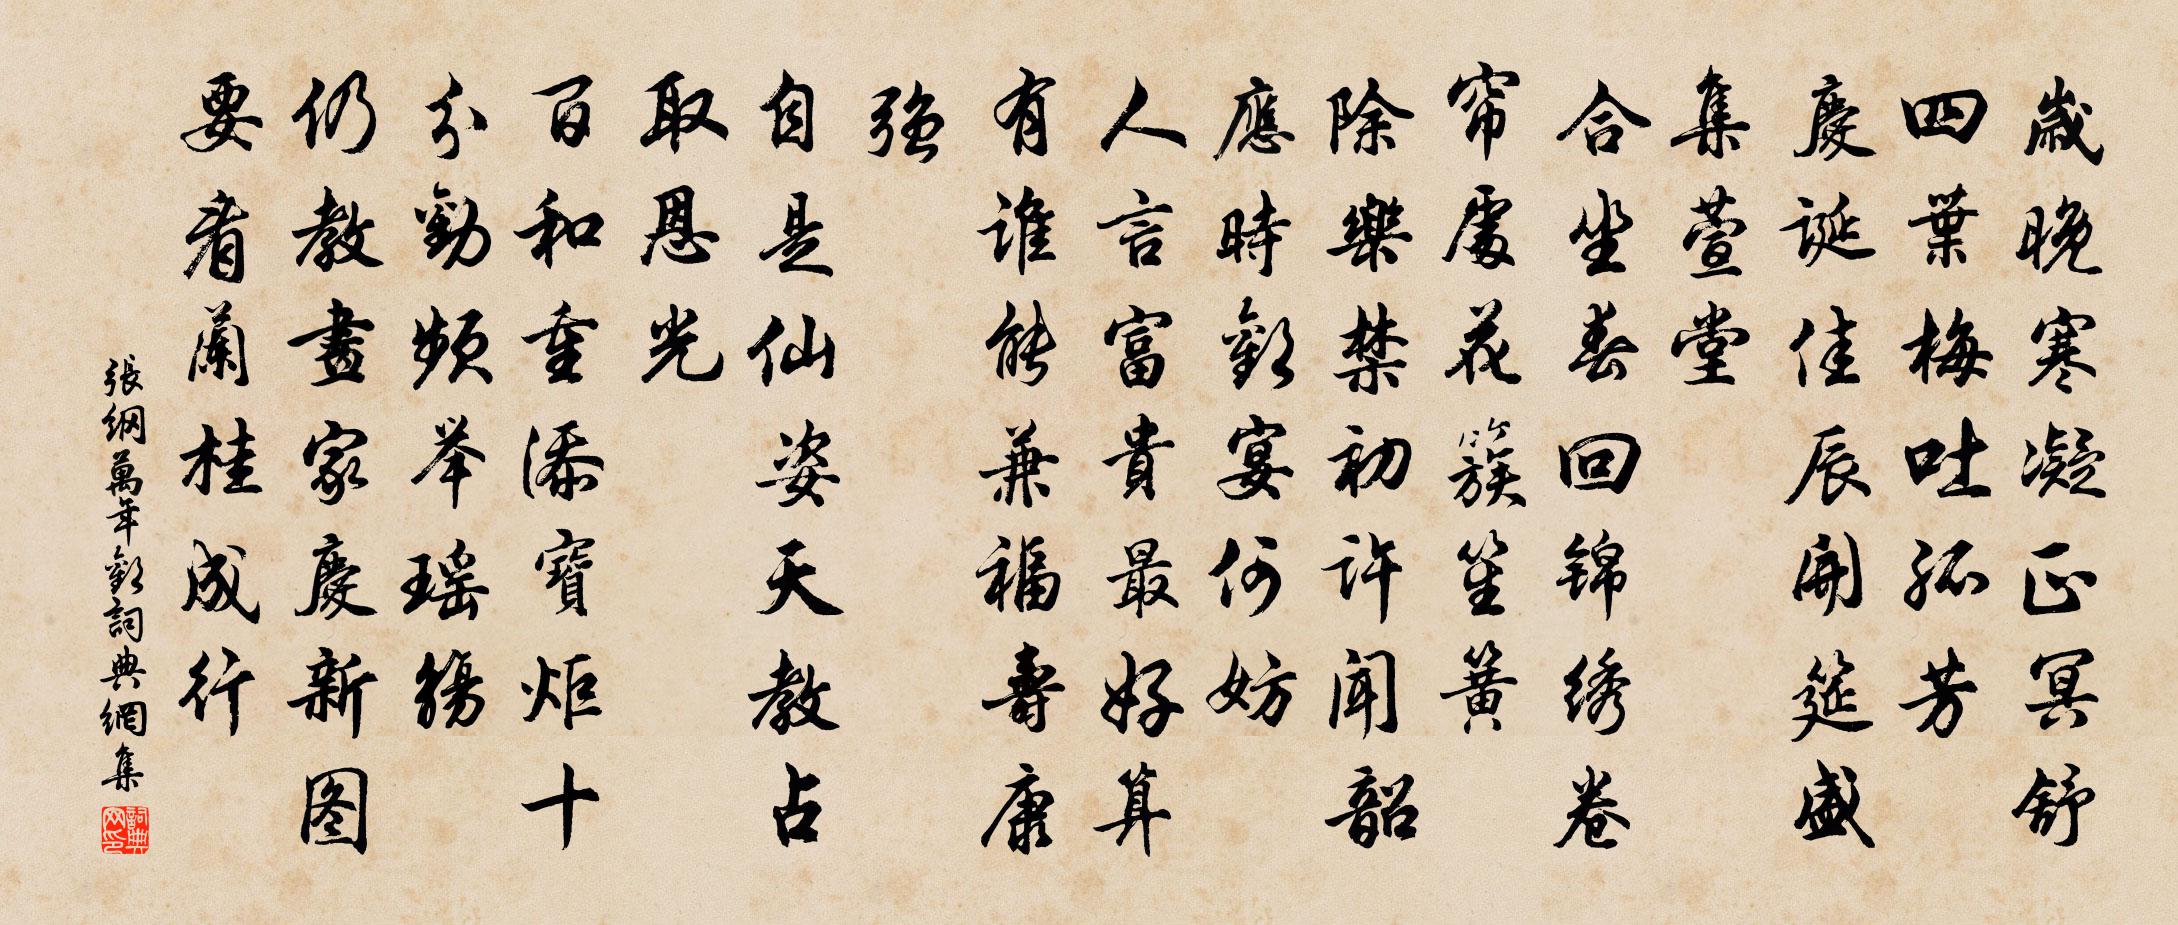 歲晚寒凝正冥舒
四葉梅吐孤芳
慶誕佳辰開筵盛
集萱堂
合坐春回锦绣卷
帘處花簇笙簧
除樂禁初许闻韶
應時歡宴何妨
人言富貴最好算
有谁能兼福壽康
强
自是仙姿天教占
取恩光
百和重添寶炬十
分勸頻举瑶觴
仍教畫家慶新图
要看蘭桂成行
張綱萬年歡詞典網集
詞典网印